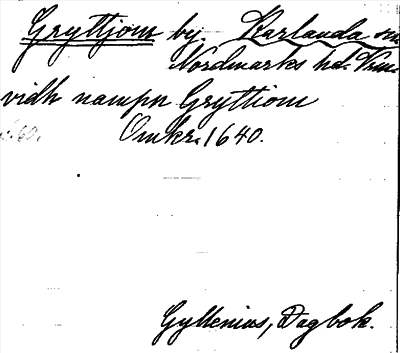 Gryttjom by. Karlanda sn
Nordmarks hd. Vrm.
vidh nampn Gryttiom
Omkr. 1640.
Gyllenius, Dagbok.